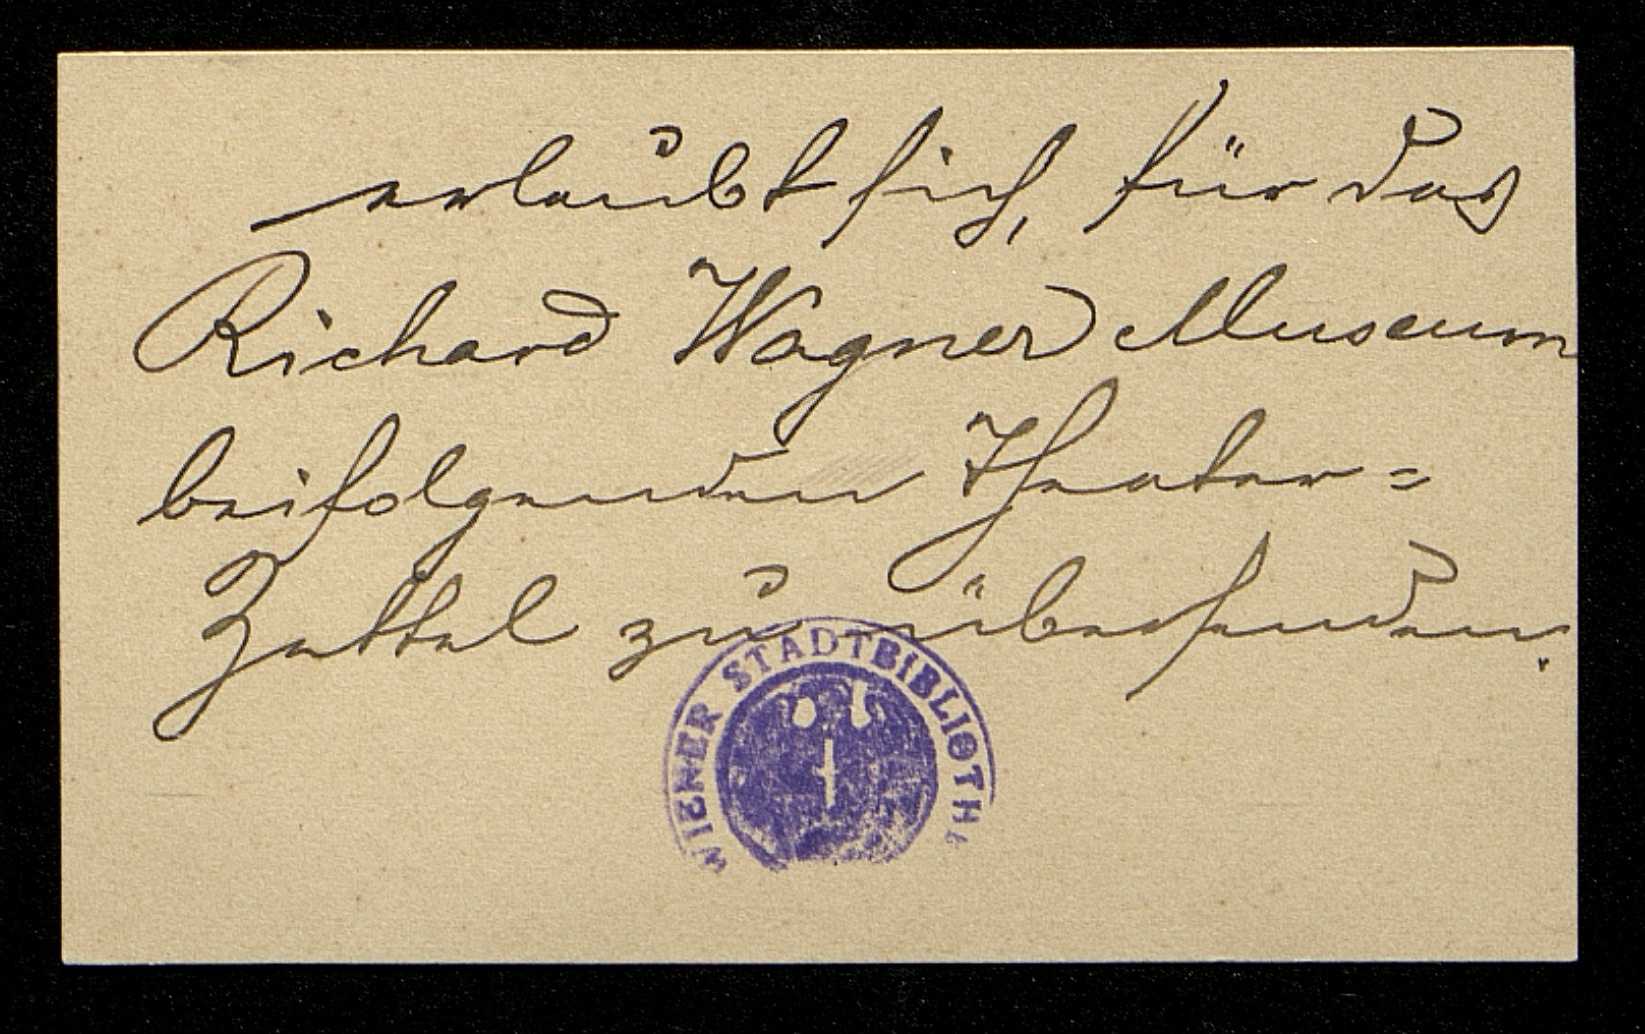 erlaubt sich, für das
Richard Wagner Museum
beifolgenden Theater=
Zettel zu übersenden.
WIENER STADTBIBLIOTHE